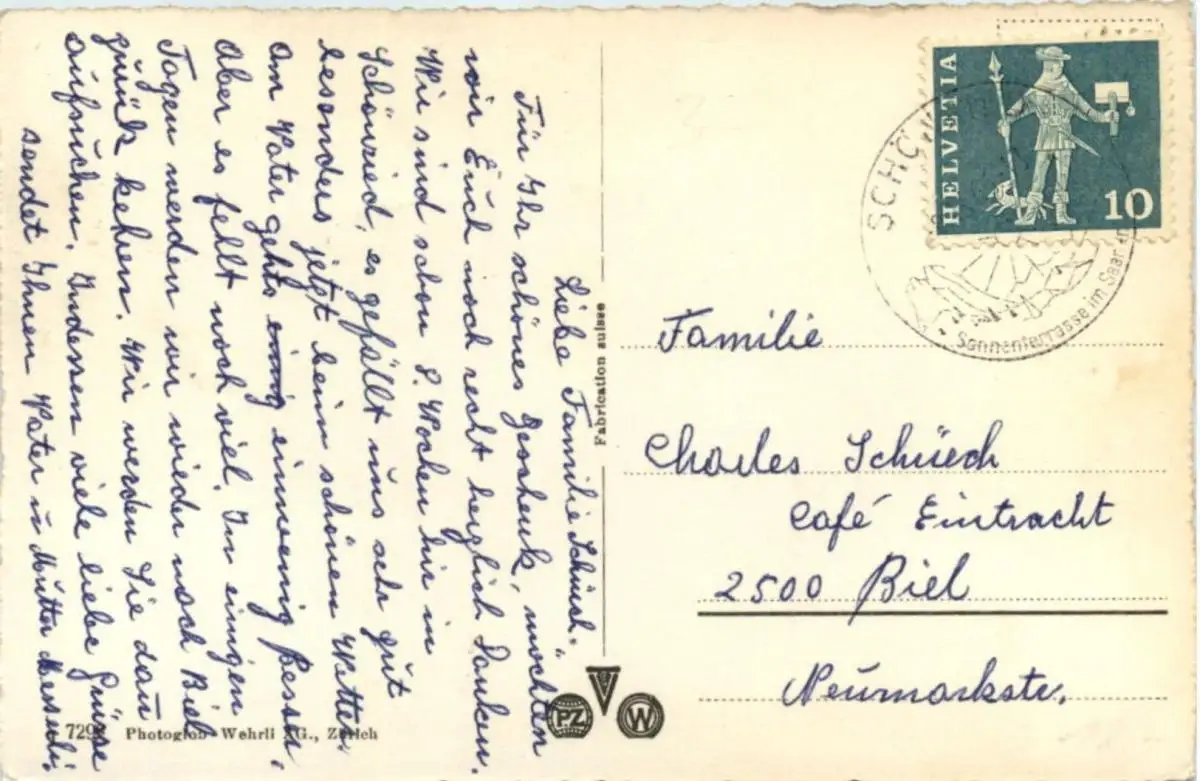 Liebe Familie Schüch."
Für Ihr schönes Gesschenk, möchten
wir Euch noch recht herzlich Danken.
Wir sind schon 8. Wochen hir in
Schönried, es gefällt uns sehr gut
besonders jetzt beim schönen Wetter
Am Vater gehts einwenig Besser,
Aber es fehlt noch viel. In einigen
Tagen werden wir wieder nach Biel
zurük kehren. Wir werden Sie dan
aufsuchen. Indessen viele liebe Grüsse
sendet Ihnen Vater u Mutter
7291 Photoglob-Wehrli AG., Zürich
Fabrication suisse
PZ V W
HELVETIA
10
SCHÖ
Sonnenterrasse im Saan
Familie
Charles Schüech
Café Eintracht
2500 Biel
Neumarkstr.